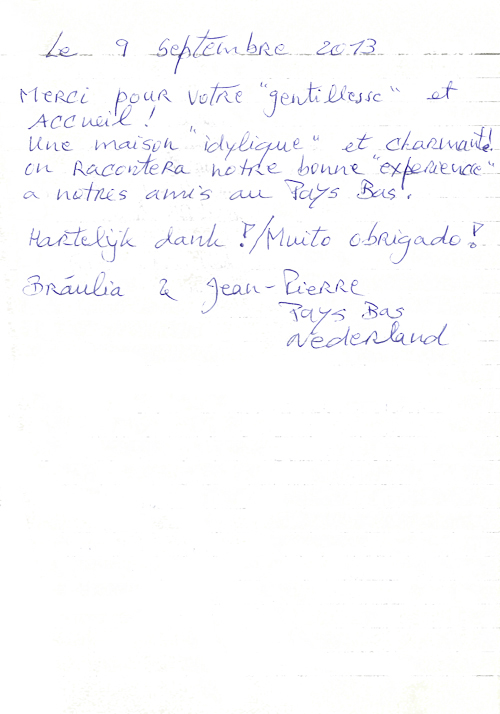 Le 9 septembre 2013
Merci pour votre "gentillesse" et
Accueil!
Une maison "idyligue" et charmante!
on Racontera notre bonne "experience"
a notres amis au Pays Bas!
Hartelijk dank!/Muito obrigado!
Bráulia & Jean-Pierre
Pays Bas
Nederland